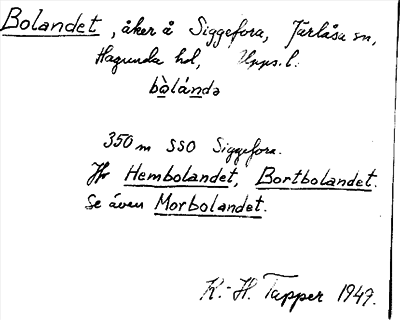 Bolandet, åker å Siggefora, Järlåsa sn,
Hagunda hd, Upps. l.
bòlándə
350 m SSO Siggefora.
Jfr Hembolandet, Bortbolandet.
Se även Morbolandet.
K.-H. Tapper 1947.